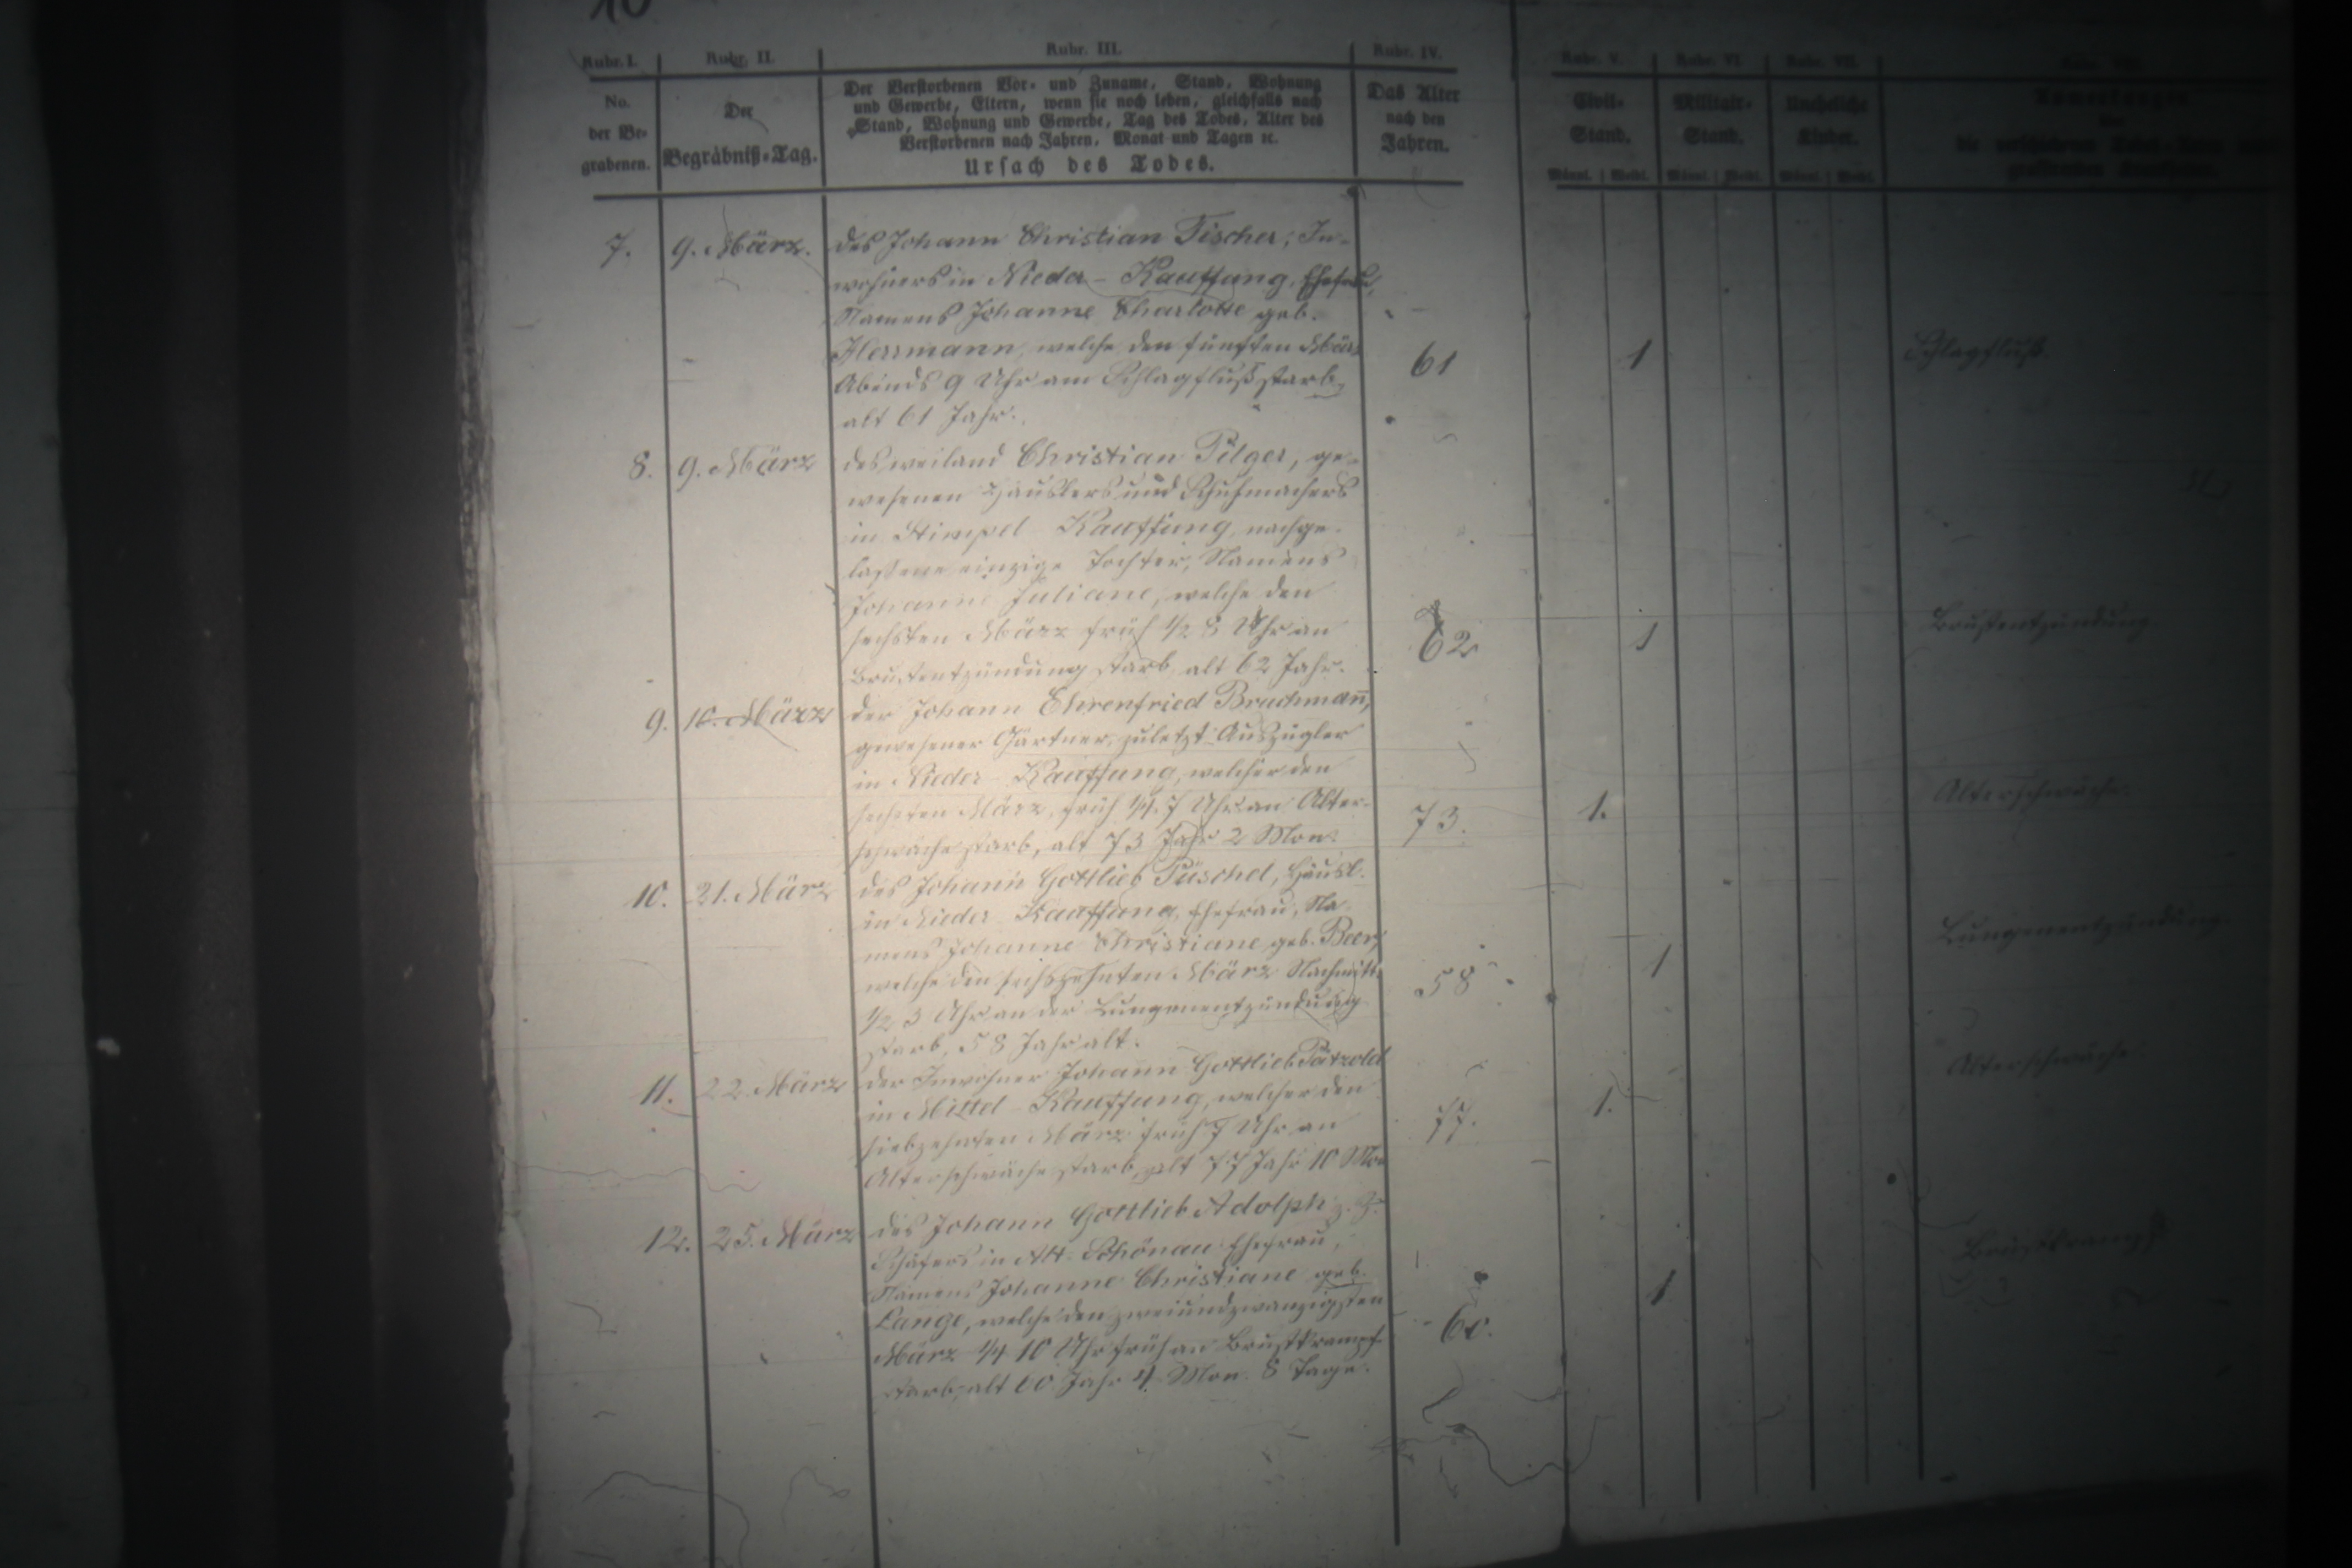 10
Rubr. I. Rubr. II. Rubr. III. Rubr. IV. Rubr. V. Rubr. VI Rubr. VII.
No.
der Be-
grabenen.
Der
Begräbniß-Tag.
Der Verstorbenen Vor- und Zuname, Stand, Wohnung
und Gewerbe, Eltern, wenn sie noch leben, gleichfalls nach
Stand, Wohnung und Gewerbe, Tag des Todes, Alter des
Verstorbenen nach Jahren, Monat und Tagen ec.
Ursach des Todes.
Das Alter
nach den
Jahren.
Civil-
Stand.
Männl. Weibl.
Militair-
Stand.
Männl. Weibl.
Uneheliche
Kinder.
Männl. Weibl.
7. 9. März. des Johann Christian Fischer, In-
wohners in Nieder-Kauffung, Ehefrau,
Namens Johanne Charlotte geb.
Herrmann, welche den fünften März 61 1 Schlagfluß
Abends 9 Uhr am Schlagfluß starb,
alt 61 Jahr.
8. 9. März des weiland Christian Pilger, ge-
wesenen Häuslers und Schuhmachers
in Stimpel Kauffung, nachge-
lassene einzige Tochter, Namens
Johanne Juliane, welche den
sechsten März früh 1/2 8 Uhr an 62 1 Brustentzündung
Brustentzündung starb, alt 62 Jahr.
9. 10. März der Johann Ehrenfried Bruchmañ,
gewesener Gärtner, zuletzt Auszügler
in Nieder-Kauffung, welcher den
sechsten März, früh 1/4 7 Uhr an Alter- 73. 1. Alterschwäche
schwäche starb, alt 73 Jahr 2 Mon.
10. 21. März des Johann Gottlieb Püschel, Häusl.
in Nieder-Kauffung, Ehefrau, Na-
mens Johanne Christiane geb. Beer,
welche den sechszehnten März Nachmitt. 58 1 Lungenentzündung.
1/2 3 Uhr an der Lungenentzündung
starb, 58 Jahr alt.
11. 22. März der Inwohner Johann Gottlieb Pätzold
in Mittel-Kauffung, welcher den
siebzehnten März früh 7 Uhr an 77. 1. Alterschwäche
Alterschwäche starb, alt 77 Jahr 10 Mon
12. 25. März des Johann Gottlieb Adolph z. Z.
Schäfers in Alt-Schönau Ehefrau,
Namens Johanne Christiane geb.
Lange, welche den zweiundzwanzigsten
März 1/4 10 Uhr früh an Brustkrampf 60. 1 Brustkrampf
starb, alt 60 Jahr 4 Mon. 8 Tage.